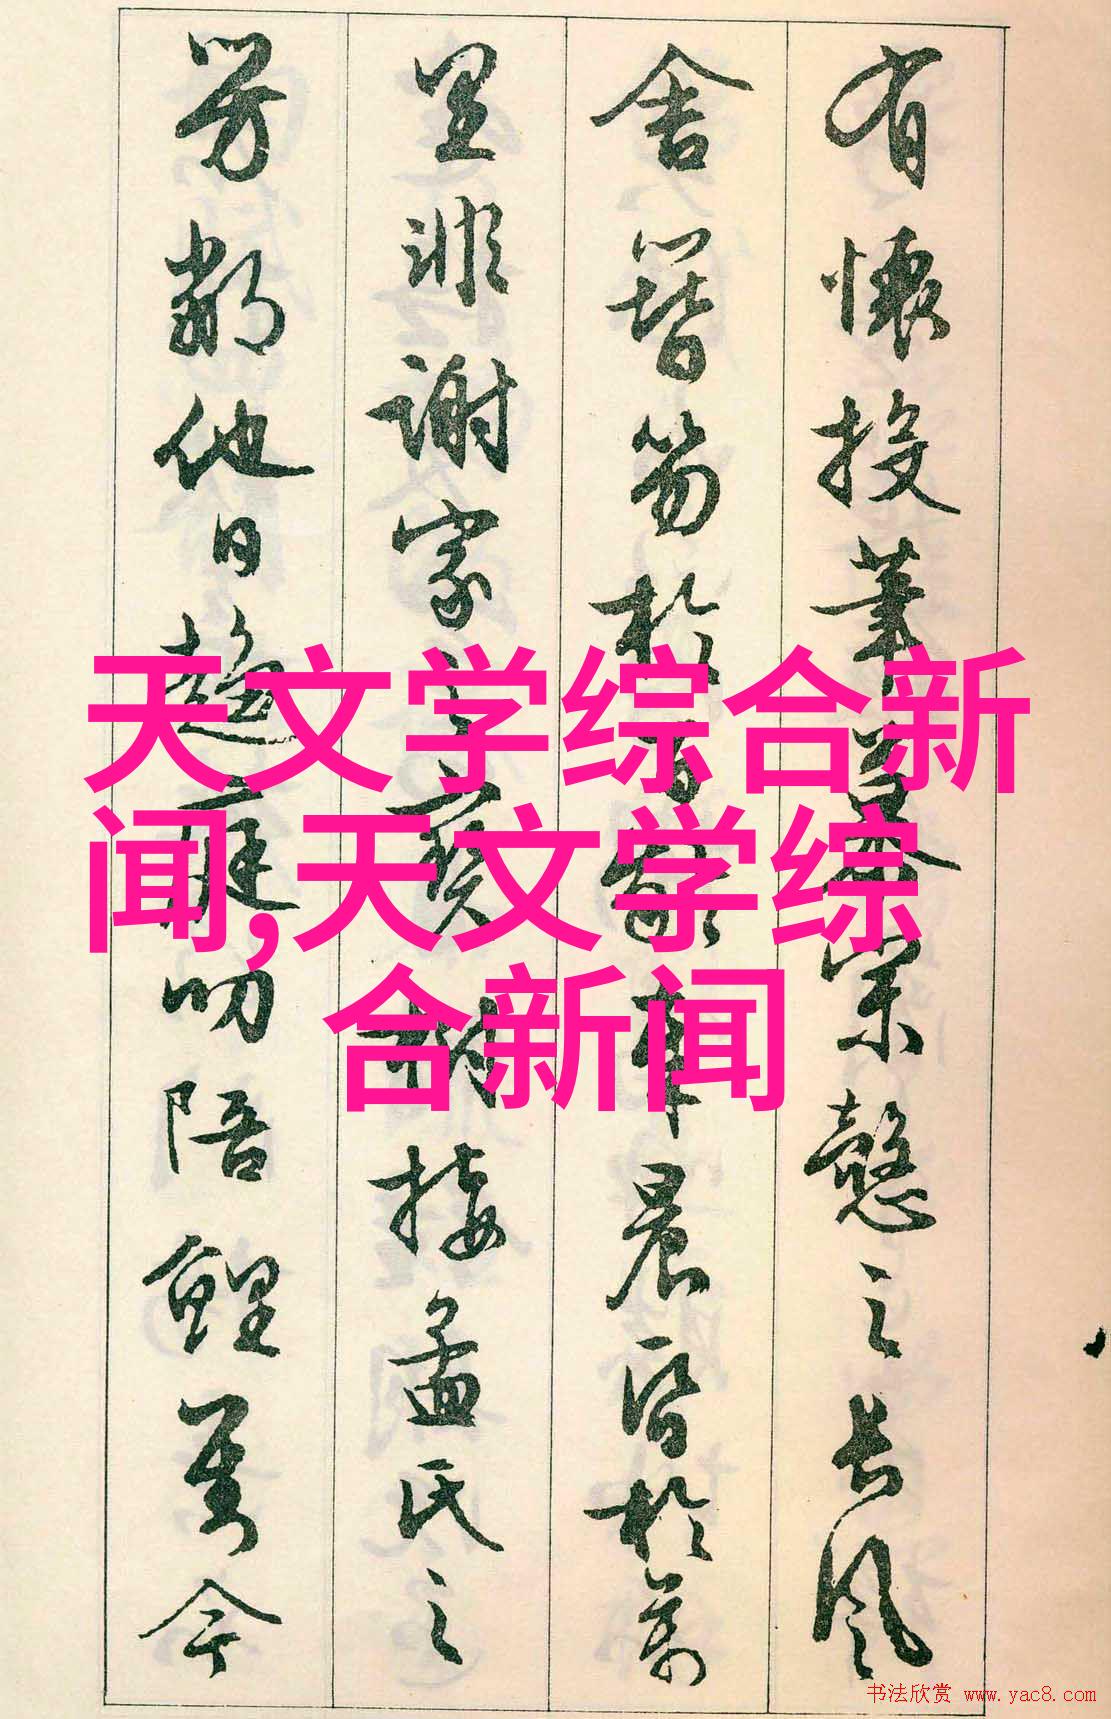 有懷投筆慕宗愨之長風
舍簪笏於百齡奉晨昏於萬
里非謝家之寶樹接孟氏之
芳鄰他日趨庭叨陪鯉對今
天文学综合新
闻,天文学综
合新闻
书法欣赏 www.yac8.com